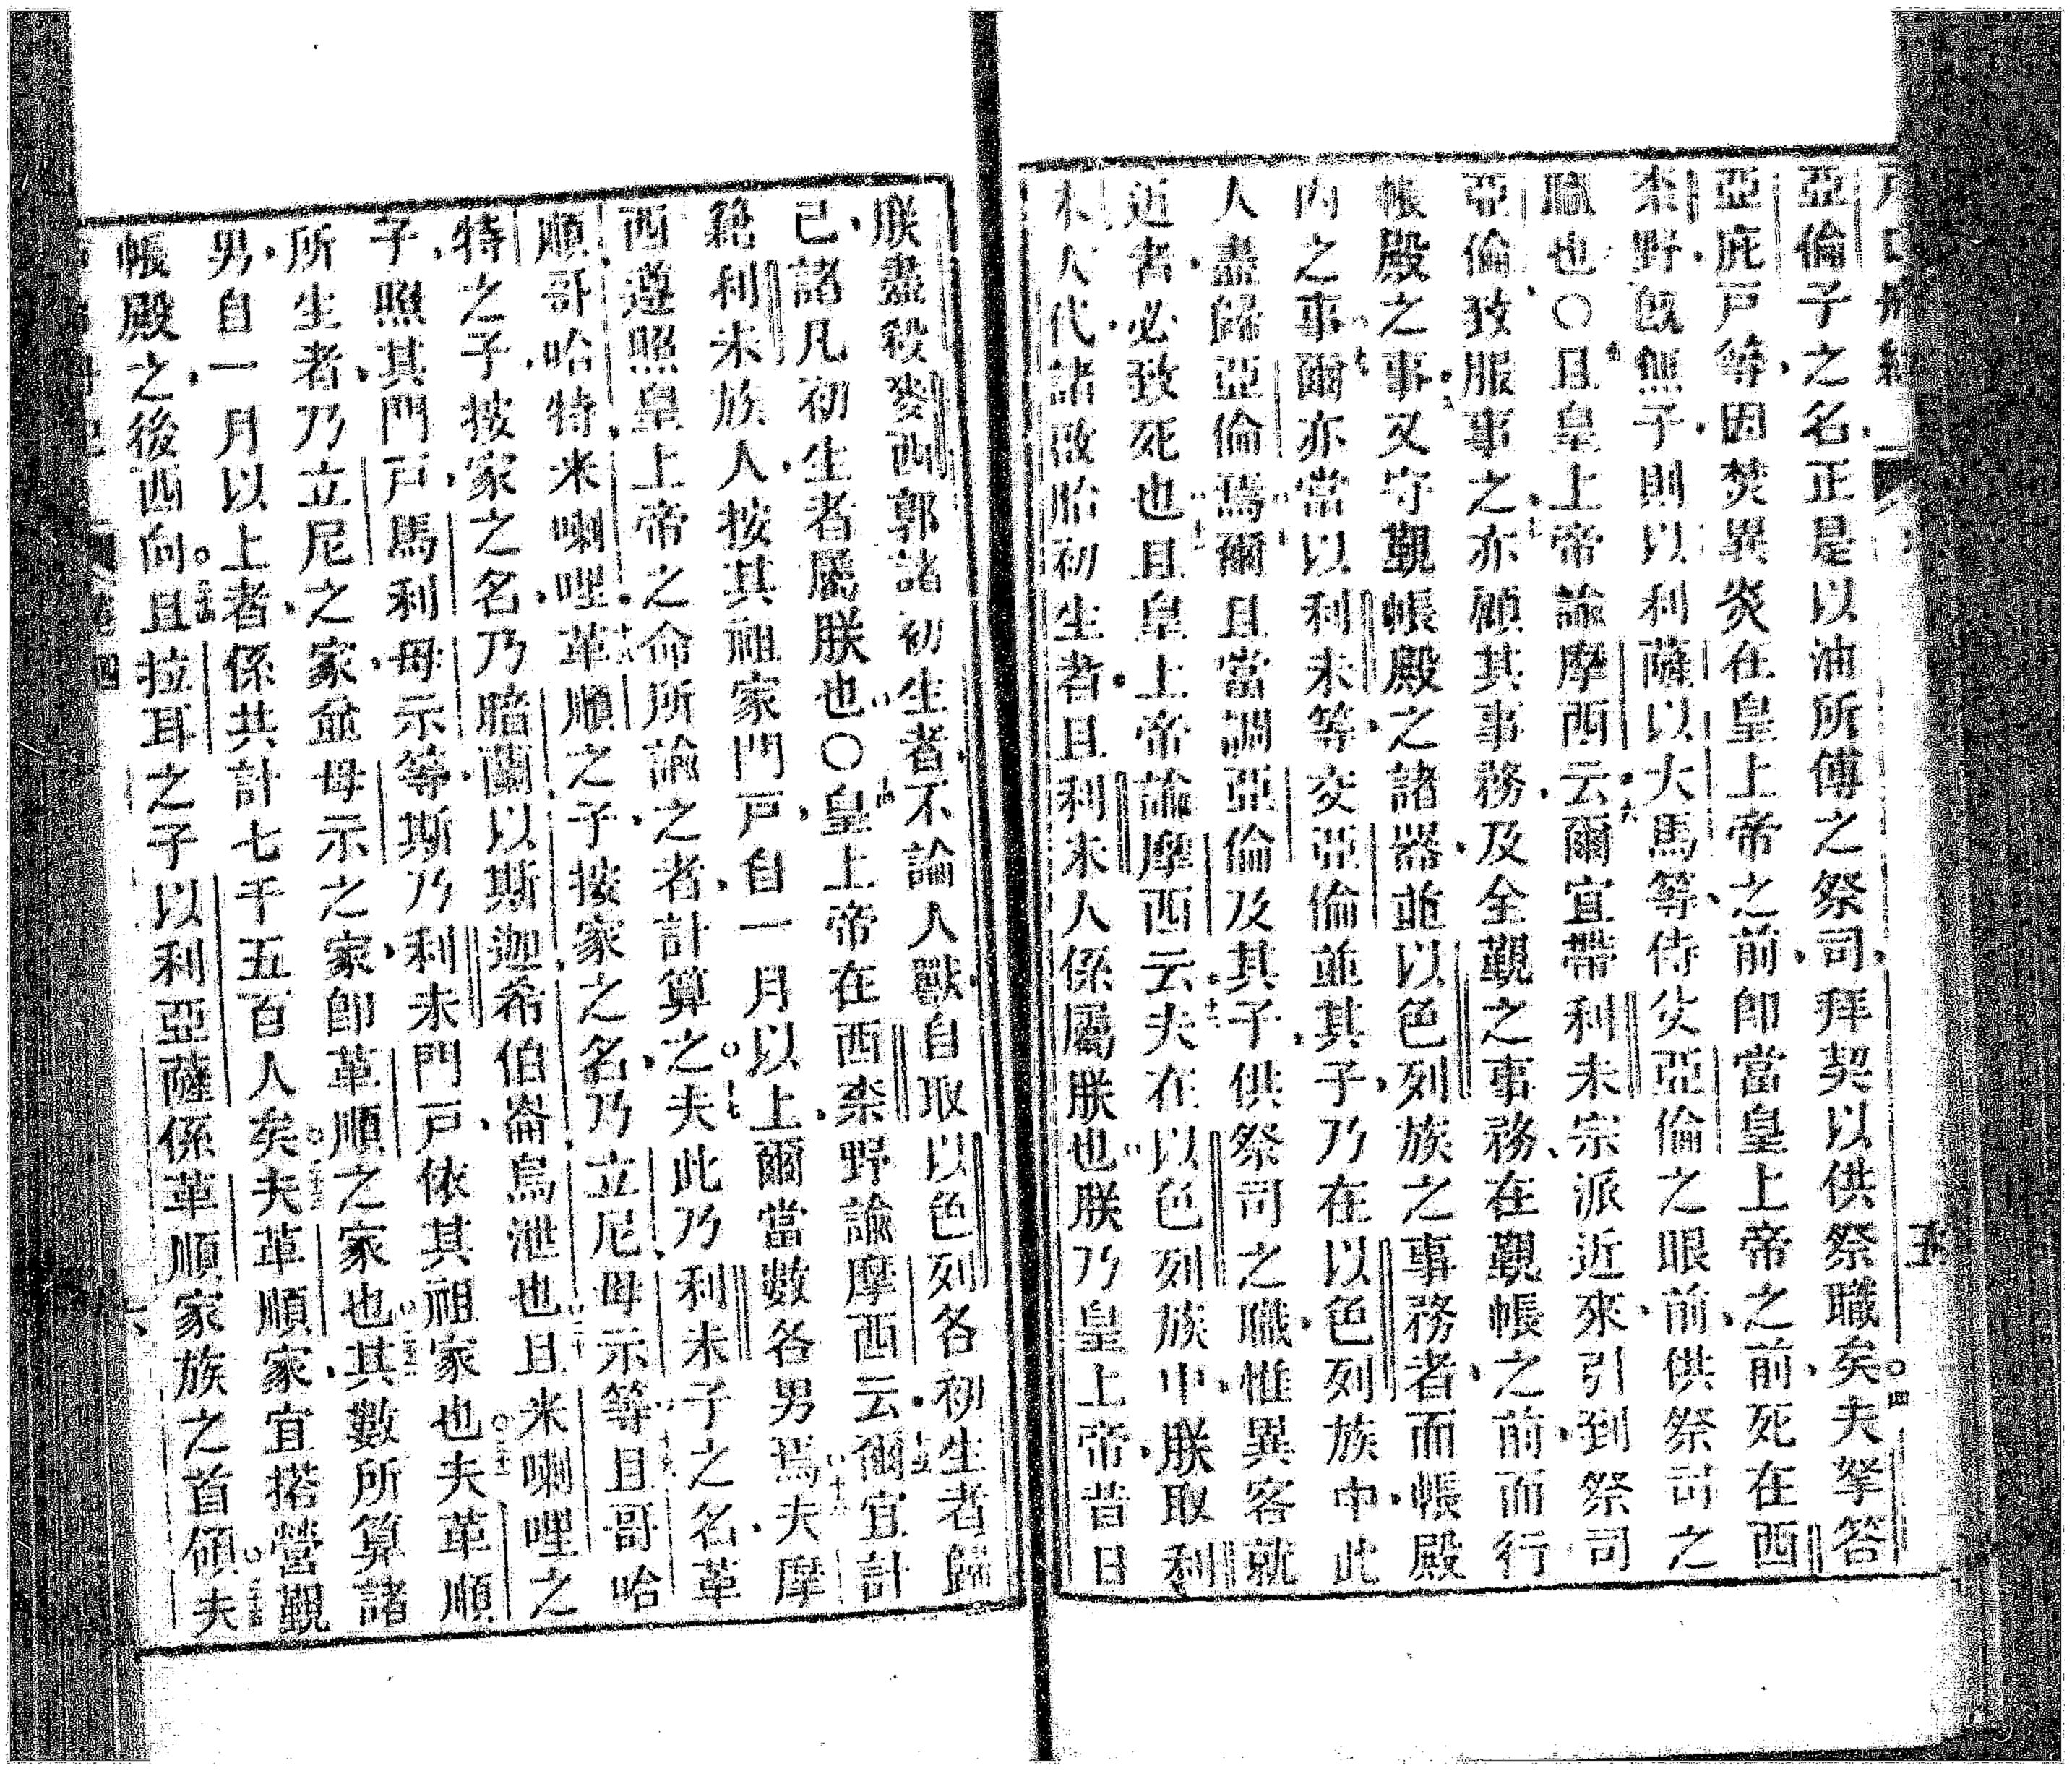 五
亞倫子之名正是以油所傅之祭司拜契以供祭職矣○四夫拏答
亞庇戸等因焚異炎在皇上帝之前即當皇上帝之前死在西
柰野旣無子則以利薩以大馬等侍父亞倫之眼前供祭司之
職也○五且皇上帝諭摩西云六爾宜帶利未宗派近來引到祭司
亞倫致服事之七亦顧其事務及全覲之事務在覲帳之前而行
帳殿之事八又守覲帳殿之諸器並以色列族之事務者而帳殿
内之事九爾亦當以利未等交亞倫並其子乃在以色列族中此
人盡歸亞倫焉十爾且當調亞倫及其子供祭司之職惟異客就
近者必致死也十一且皇上帝諭摩西云十二夫在以色列族中朕取利
未人代諸啟胎初生者且利未人係屬朕也十三朕乃皇上帝昔日
朕盡殺麥西郭諸初生者不論人獸自取以色列各初生者歸
己諸凡初生者屬朕朕也○十四皇上帝在西柰野諭摩西云十五爾宜計
籍利未族人按其祖家門戸自一月以上爾當數各男焉十六夫摩
西遵照皇上帝之命所諭之者計算之○十七夫此乃利未子之名革
順哥哈特米喇哩十八革順之子按家之名乃立尼母示等十九且哥哈
特之子按家之名乃暗蘭以斯迦希伯崙烏泄也二十且米喇哩之
子照其門戸馬利母示等斯乃利未門戸依其祖家也○二十一夫革順
所生者乃立尼之家並母示之家即革順之家也二十二其數所算諸
男自一月以上者係共計七千五百人矣○二十三夫革順家宜搭營覲
帳殿之後西向○二十四且拉耳之子以利亞薩係革順家族之首領○二十五夫
六